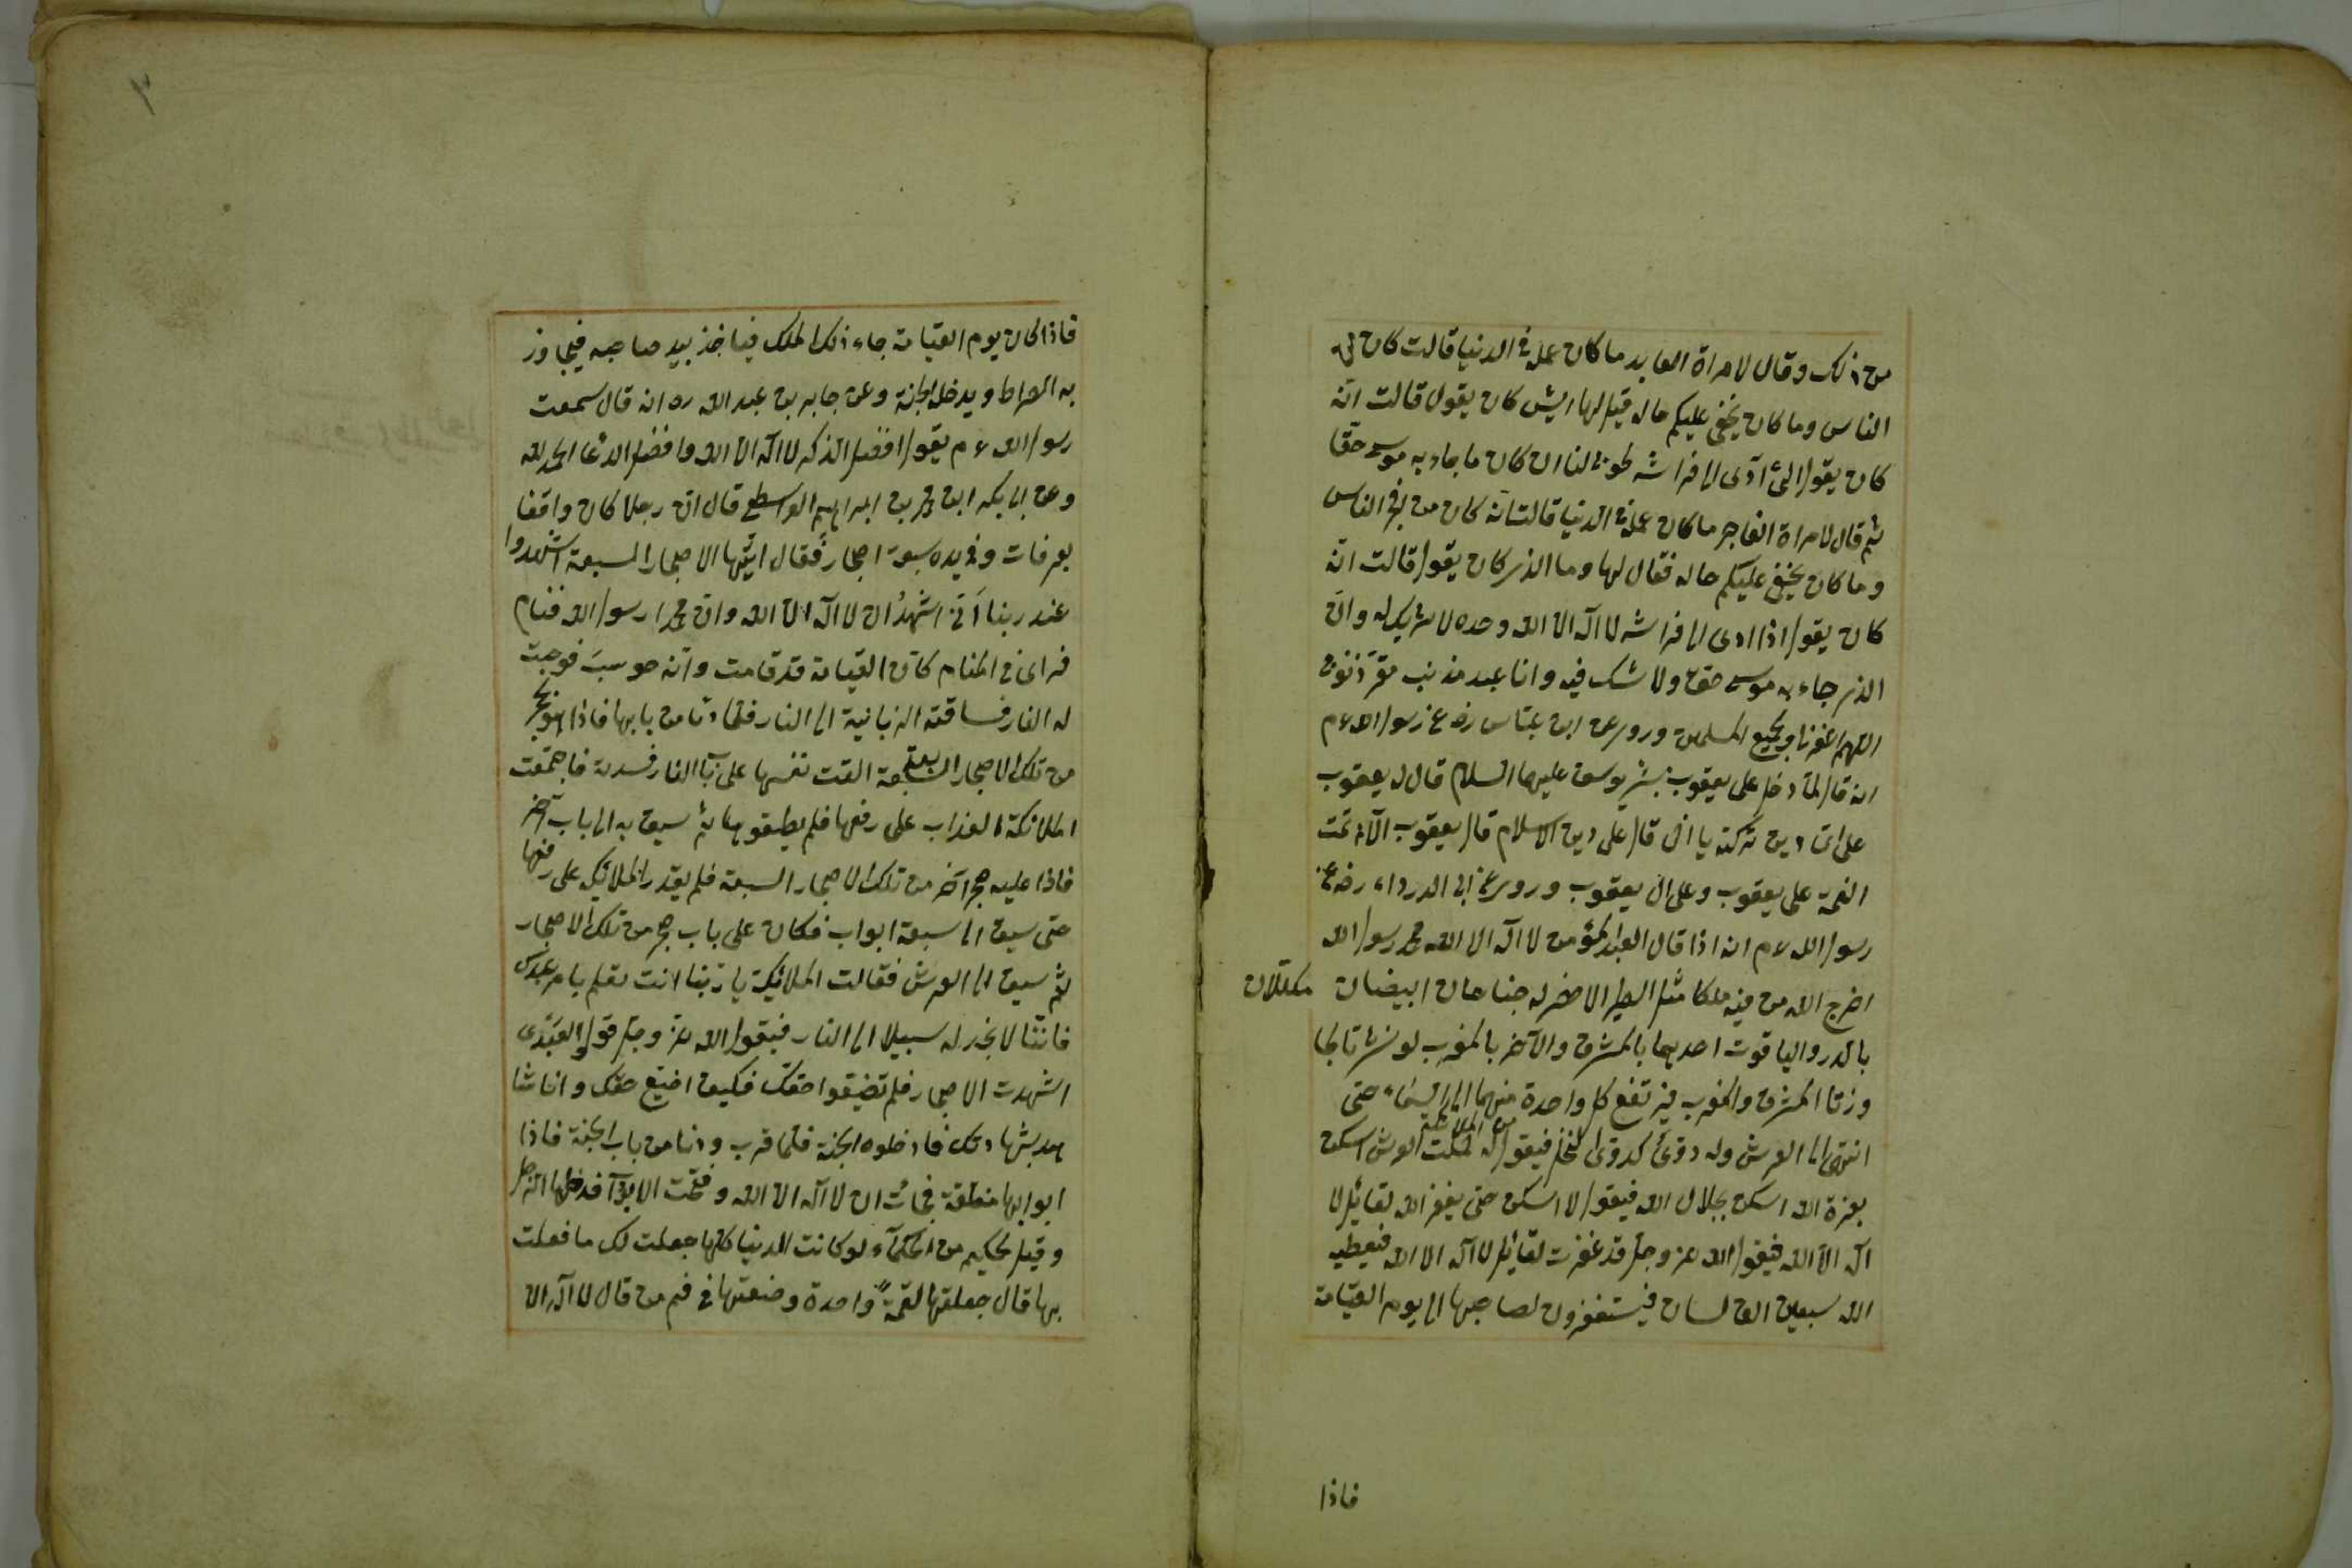 من ذلك وقال لامراة العابد ما كان عمله فى الدنيا قالت كان فى
الناس وما كان يخفى عليكم حاله قيل لها ايش كان يقول قالت انّه
كان يقول اذا آوى الى فراشه طوبى لنا ان كان ما جاء به موسى حقّا
ثم قال لامراة الفاجر ما كان عمله فى الدنيا قالت انّه كان من الناس
وما كان يخفى عليكم حاله فقال لها وما الذى كان يقول قالت انّه
كان يقول اذا اوى الى فراشه لا اله الا الله وحده لا شريك له وانّ
الذى جاء به موسى حق ولا شك فيه وانا عبد مذنب
اللهم اغفرنا ولجميع المسلمين وروى عن ابن عبّاس رضـ عن رسول الله ءم
انه قال لمّا دخل على يعقوب بشير يوسف عليهما السلام قال له يعقوب
على اىّ دين تركته يا اخى قال على دين الاسلام قال يعقوب الآن تمت
النعمة على يعقوب وعلى ال يعقوب وروى عن ابى الدرداء رضـ عن
رسول الله ءم انه اذا قال العبد المؤمن لا اله الا الله محمد رسول الله
اخرج الله من فيه ملكا مثل الطير الاخضر له جناحان ابيضان مكللان
بالدر والياقوت احديهما بالمشرق والآخر بالمغرب لو نشرتا لجا
وزتا المشرق والمغرب فيرتفع كل واحدة منهما الى السماء حتى
انتهى الى العرش وله دوىّ كدوى النحل فيقول له حملت العرش اسكن
بعزة الله اسكن بجلال الله فيقول لا اسكن حتى يغفر الله لقائل لا
اله الا الله فيقول الله عز وجل قد غفرت لقائل لا اله الا الله فيعطيه
الله سبعين الف لسان فيستغفرون لصاحبها الى يوم القيامة
فاذا
٣
فاذا كان يوم القيامة جاء ذلك الملك فياخذ بيد صاحبه فيجاوز
به الصراط ويدخل الجنة وعن جابر بن عبد الله رہ انه قال سمعت
رسول الله ءم يقول افضل الذكر لا اله الا الله وافضل الدعا الحمد لله
وعن ابى بكر ابن محمد بن ابراهيم الواسطى قال انّ رجلا كان واقفا
بعرفات وفى يده سبعة احجار فقال ايتها الاحجار السبعة اشهدوا
عند ربنا انّى اشهدُ ان لا اله الّا الله وانّ محمدا رسول الله فنام
فراى فى المنام كانّ القيامة قد قامت وانّه حوسب فوجبت
له النار فساقته الزبانية الى النار فلمّا دنا من بابها فاذا هو بحجر
من تلك الاحجار السبعة القت نفسها على باب النار فسدته فاجتمعت
الملائكة العذاب على رفعها فلم يطيقوها ثم سيق به الى باب آخر
فاذا عليه حجر آخر من تلك الاحجار السبعة فلم يقدر الملائكة على رفعها
حتى سيق الى سبعة ابواب فكان على باب حجر من تلك الاحجار
ثم سيق الى العرش فقالت الملائكة يا ربّنا انت تعلم بامر عبدك
فانّنا لا نجد له سبيلا الى النار فيقول الله عزّ وجل
اشهدت الاحجار فلم تضيّقوا حقّك فكيف اضيّع حقك وانا شا
هد بشهادتك فادخلوه الجنة فلمّا قرب ودنا من باب الجنة فاذا
ابوابها مغلقة فجاءت ان لا اله الا الله وفتحت الابواب فدخلها الرجل
وقيل لحكيم من الحكمآء لو كانت الدنيا كلها جعلت لك ما فعلت
بها قال جعلتها لقمةً واحدة وضعتها فى فم من قال لا اله الا